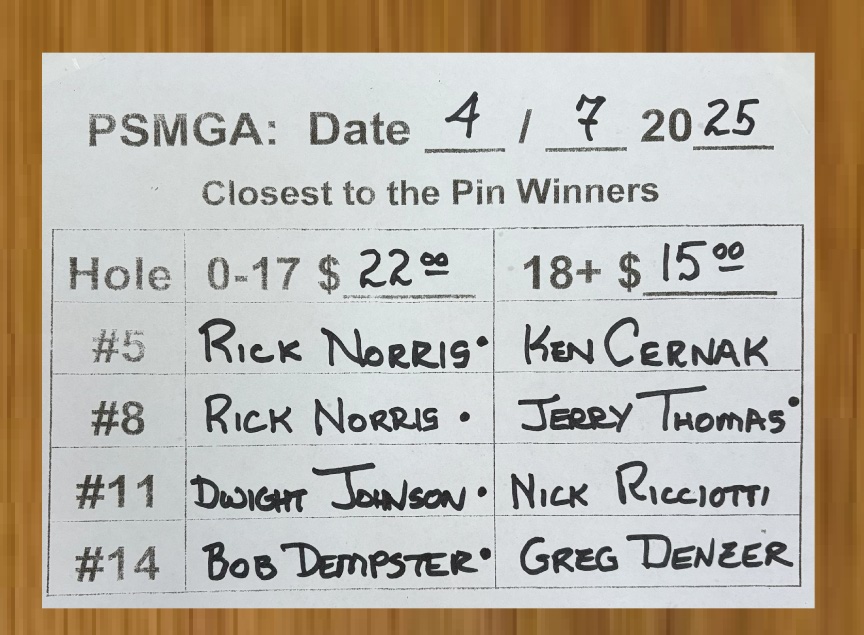 PSMGA: Date 4 / 7 2025
Closest to the Pin Winners
Hole 0-17 $ 22.00 18+ $ 15.00
#5 RICK NORRIS • KEN CERNAK
#8 RICK NORRIS • JERRY THOMAS •
#11 DWIGHT JOHNSON • NICK RICCIOTTI
#14 BOB DEMPSTER • GREG DENZER